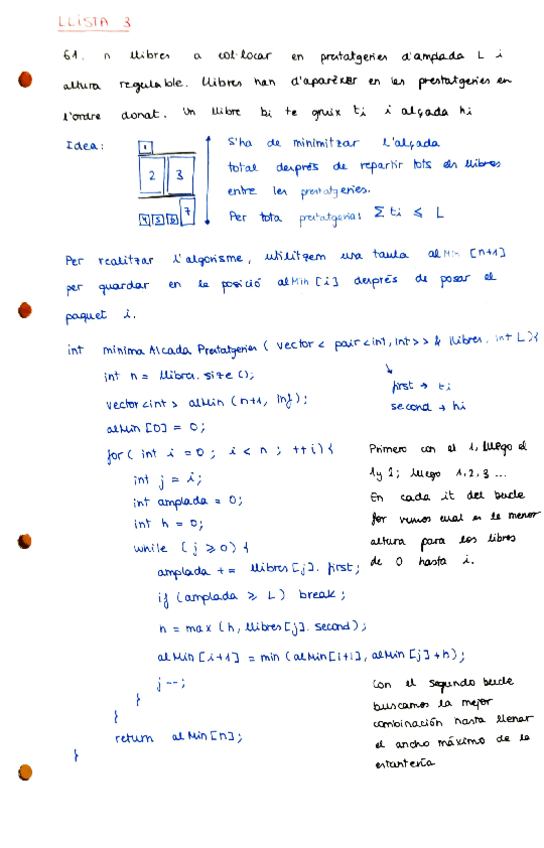 LLISTA 3
61. n llibres a col·locar en prestatgeries d'amplada L i
altura regulable. Llibres han d'aparèixer en les prestatgeries en
l'ordre donat. Un llibre bi te gruix ti i alçada hi
Idea:
1
2 3
4 5 6 7
S'ha de minimitzar l'alçada
total després de repartir tots els llibres
entre les prestatgeries.
Per tota prestatgeria: Σ ti ⩽ L
Per realitzar l'algorisme, utilitzem una taula alMin [n+1]
per guardar en la posició alMin [i] després de posar el
paquet i.
int minimaAlcada Prestatgeries ( vector < pair <int, int> > & llibres, int L) {
first → ti
second → hi
int n = llibres.size ();
vector <int> alMin (n+1, Inf);
alMin [0] = 0;
for ( int i = 0 ; i < n ; ++i) {
int j = i;
int amplada = 0;
int h = 0;
while ( j ⩾ 0) {
amplada += llibres [j]. first;
if (amplada ⩾ L) break;
h = max (h, llibres [j]. second);
alMin [i+1] = min (alMin [i+1], alMin [j] + h);
j --;
}
}
return alMin [n];
}
Primero con el 1, luego el
1 y 2; luego 1, 2, 3 ...
En cada it del bucle
for vemos cual es la menor
altura para los libros
de 0 hasta i.
Con el segundo bucle
buscamos la mejor
combinación hasta llenar
el ancho máximo de la
estantería